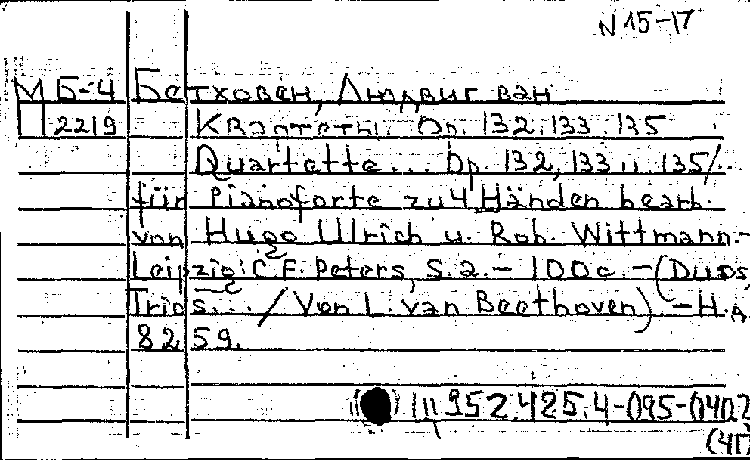 N 15-17
М Б-4 Бетховен, Людвиг ван
П 2219 Квартеты. Op. 132, 133, 135
Quartette... Op. 132, 133 u. 135/.
für Pianoforte zu 4 Händen bearb.
von Hugo Ulrich u. Rob. Wittmann.-
Leipzig: C. F. Peters, S. a. - 100 c. - (Duos,
Trios... / Von L. van Beethoven) - Н.д.
8259.
952.425.4-095-0402
(4П